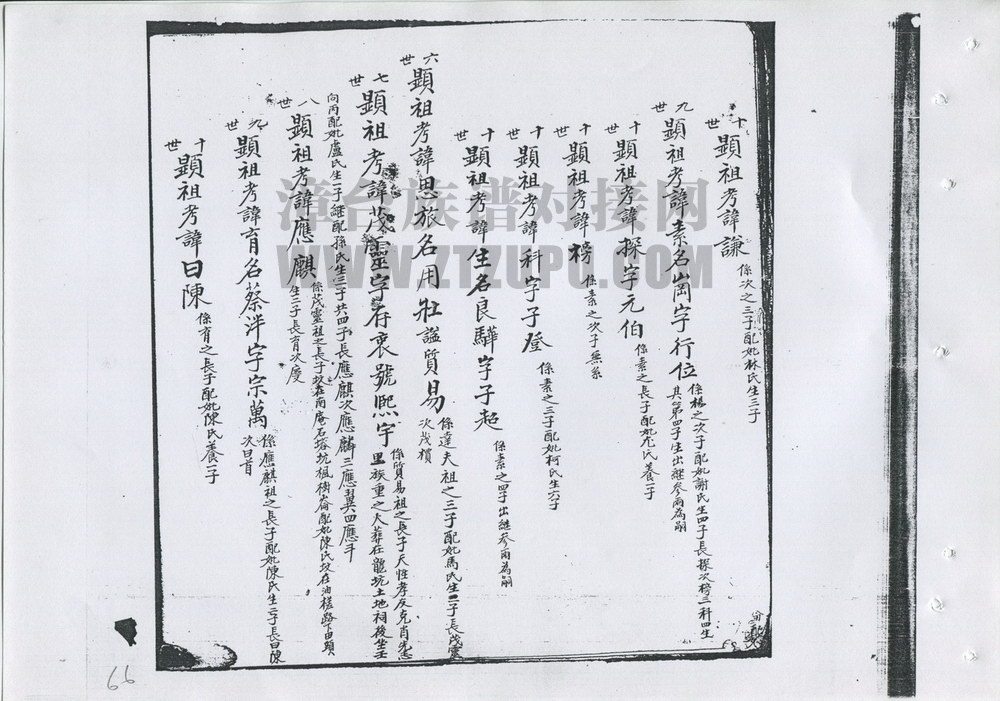 十世 顯祖考諱謙 係次之三子配妣林氏生三子
九世 顯祖考諱素名崗字行位 係楊之次子配妣謝氏生四子長探次榜三科四生
其第四子生出繼參兩為嗣
十世 顯祖考諱探字元伯 係素之長子配妣尤氏養一子
十世 顯祖考諱榜 係素之次子無系
十世 顯祖考諱科字子登 係素之三子配妣柯氏生六子
十世 顯祖考諱生名良驊字子超 係素之四子出継參兩為嗣
六世 顯祖考諱思旅名用壯謚質易 係達夫祖之三子配妣馬氏生二子長茂靈
次茂檟
七世 顯祖考諱茂靈字存衷號熙宇 係質易祖之長子天性孝友克肖先志
里族重之大葬在龍坑土地祠後坐壬
向丙配妣盧氏生一子継配孫氏生三子共四子長應麒次應麟三應翼四應斗
八世 顯祖考諱應麒 係茂靈祖之長子坟在南庵石塔坑楓樹崙配妣陳氏坟在油槎路下田頭
生二子長育次慶
九世 顯祖考諱育名蔡洋字宗萬 係應麒祖之長子配妣陳氏生二子長曰陳
次曰首
十世 顯祖考諱曰陳 係育之長子配妣陳氏養一子
66
漳台族谱对接网
WWW.ZTZUPU.COM